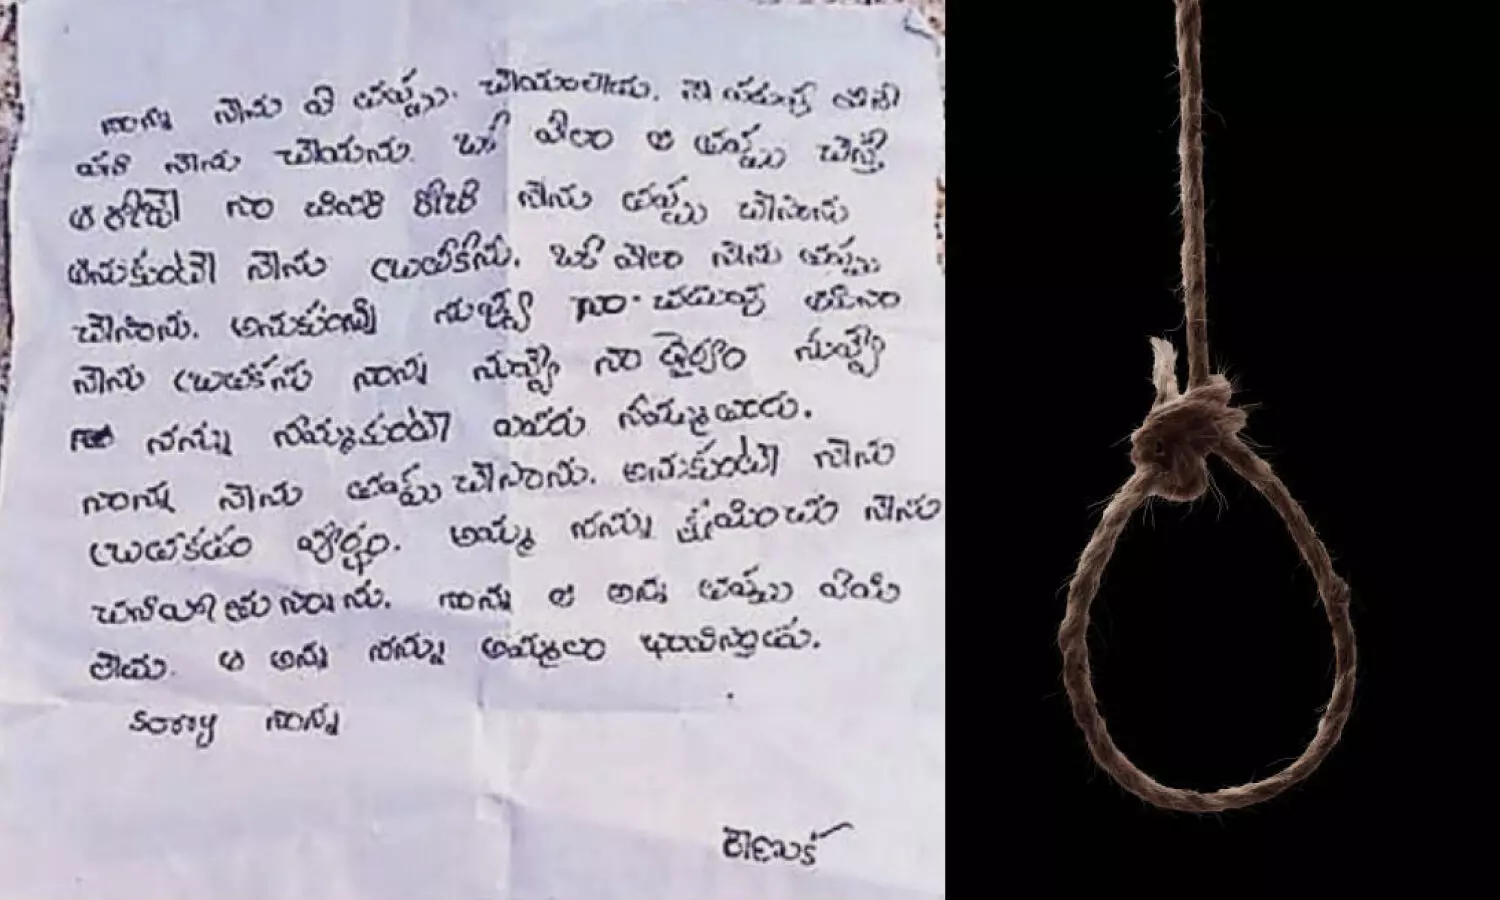 నాన్న నేను ఏ తప్పు. చేయలేదు. నా చదువు తోడి
పని నేను చేయను. ఒకే వేల ఆ తప్పు చేస్తే
ఆ రోజే నా చివరి రోజు నేను తప్పు చేసాను
అనుకుంటే నేను బ్రతకేను. ఒకే వేల నేను తప్పు
చేసాను. అనుకుంటున్న నువ్వు నా. చదువు
నేను బ్రతకను నాన్న నువ్వే నా ధైర్యం నువ్వే
నన్ను నమ్మకుంటే ఎవరు నమ్మతారు.
నాన్న నేను తప్పు చేసాను. అనుకుంటే నేను
బ్రతకడం వ్యర్థం. అమ్మ నన్ను క్షమించు నేను
చనిపోతున్నాను. నాన్న ఆ అన్న తప్పు ఏంమి
లేదు. ఆ అన్న నన్ను అమ్మలా భావిస్తాడు.
sorry నాన్న
రేణుక